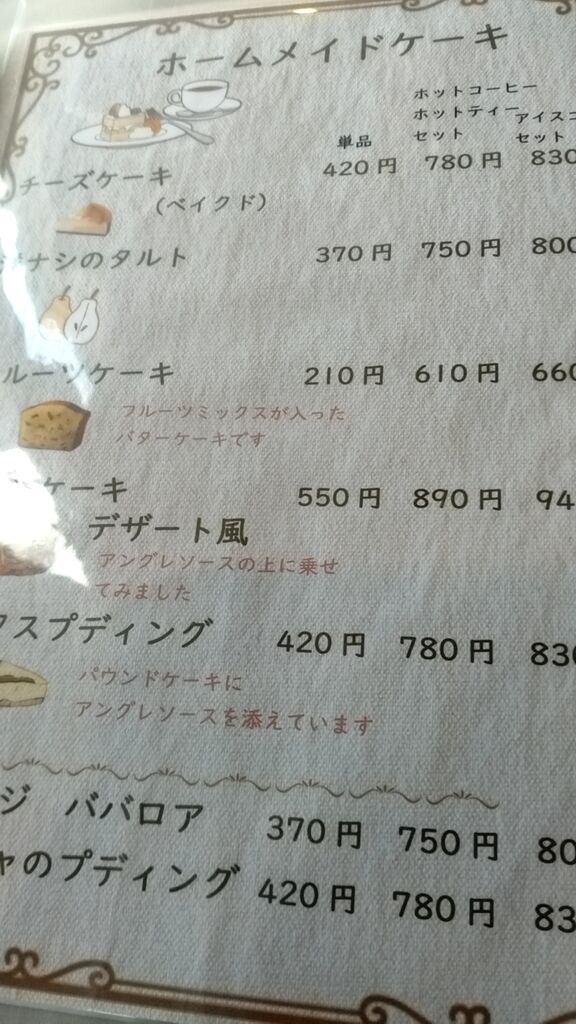 ホームメイドケーキ
ホットコーヒー
ホットティー アイスコ
セット セット
単品
チーズケーキ 420円 780円 830
(ベイクド)
ナシのタルト 370円 750円 800
ルーツケーキ 210円 610円 660
フルーツミックスが入った
バターケーキです
ケーキ 550円 890円 94
デザート風
アングレソースの上に乗せ
てみました
スプディング 420円 780円 830
パウンドケーキに
アングレソースを添えています
ジ ババロア 370円 750円 80
ャのプディング 420円 780円 83